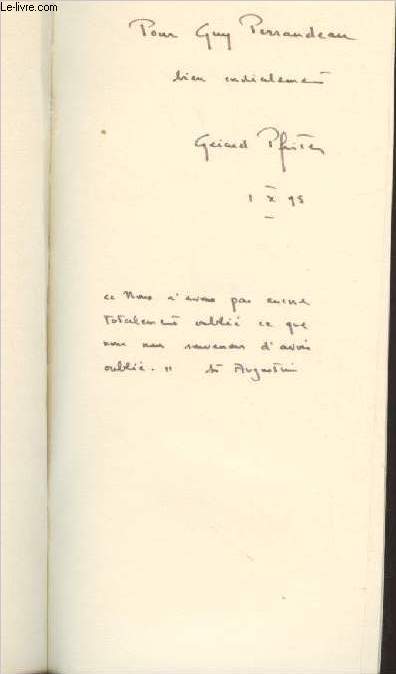 Le-livre.com
Pour Guy Perraudeau
bien cordialement
Gérard Pfister
1 X 95
« Nous n'avons pas encore
totalement oublié ce que
nous nous souvenons d'avoir
oublié. » St Augustin